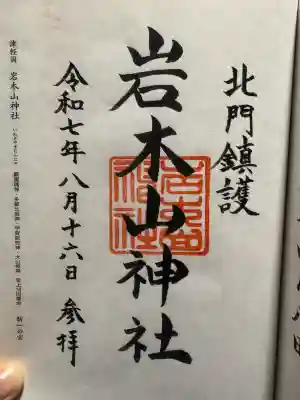 北門鎮護
岩木山神社
令和七年八月十六日 参拝
津軽国 岩木山神社